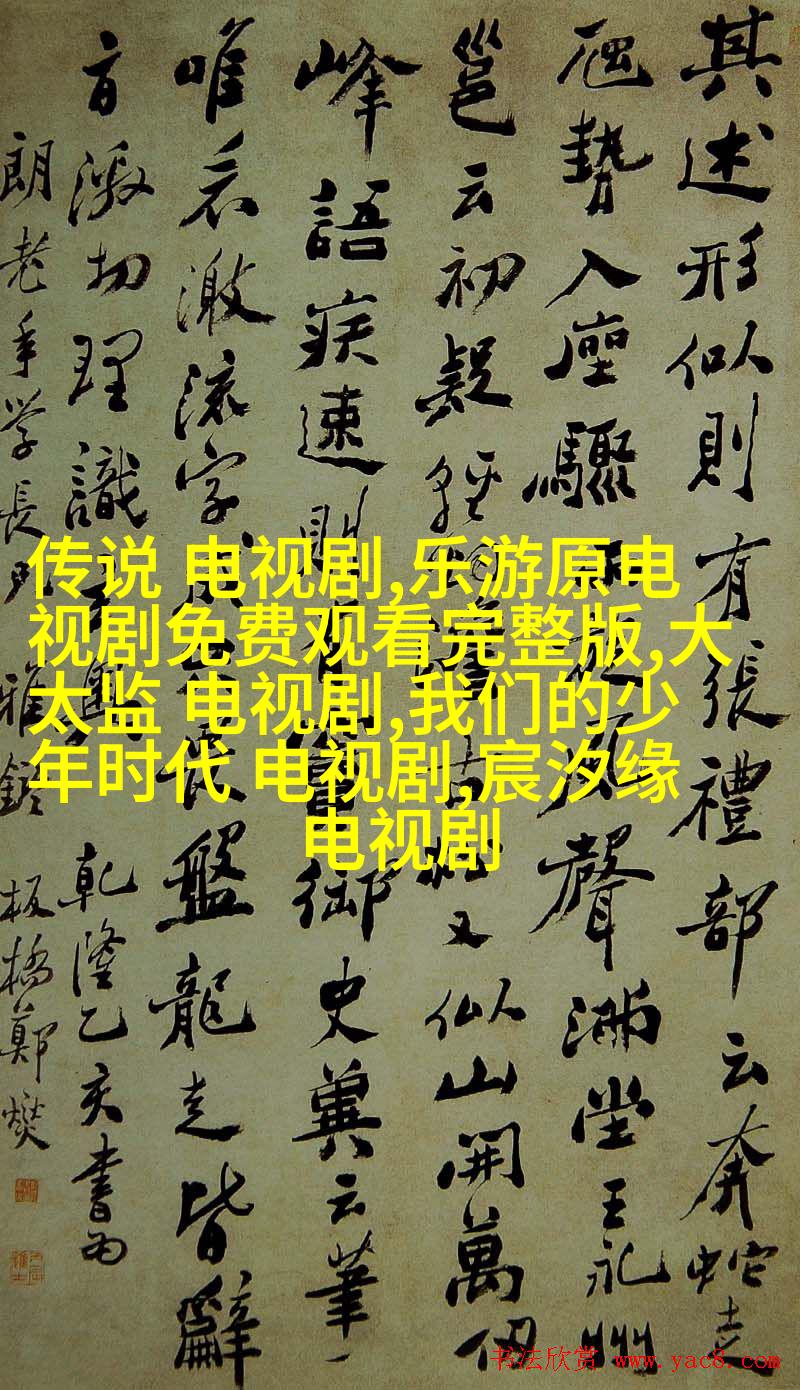 其述形似則有張禮部云奔蛇走
虺勢入座驟雨旋風聲滿堂王永州
邕云初疑輕煙澹古松又似山開萬仞
峰語疾速則有竇御史冀云筆一
唯看激流字成畏盤龍走皆辭
旨激切理識玄奧乾隆乙亥書為
朗老年學長兄雅鑒板橋鄭燮
传说 电视剧,乐游原电
视剧免费观看完整版,大
太监 电视剧,我们的少
年时代 电视剧,宸汐缘
电视剧
书法欣赏 www.yac8.com